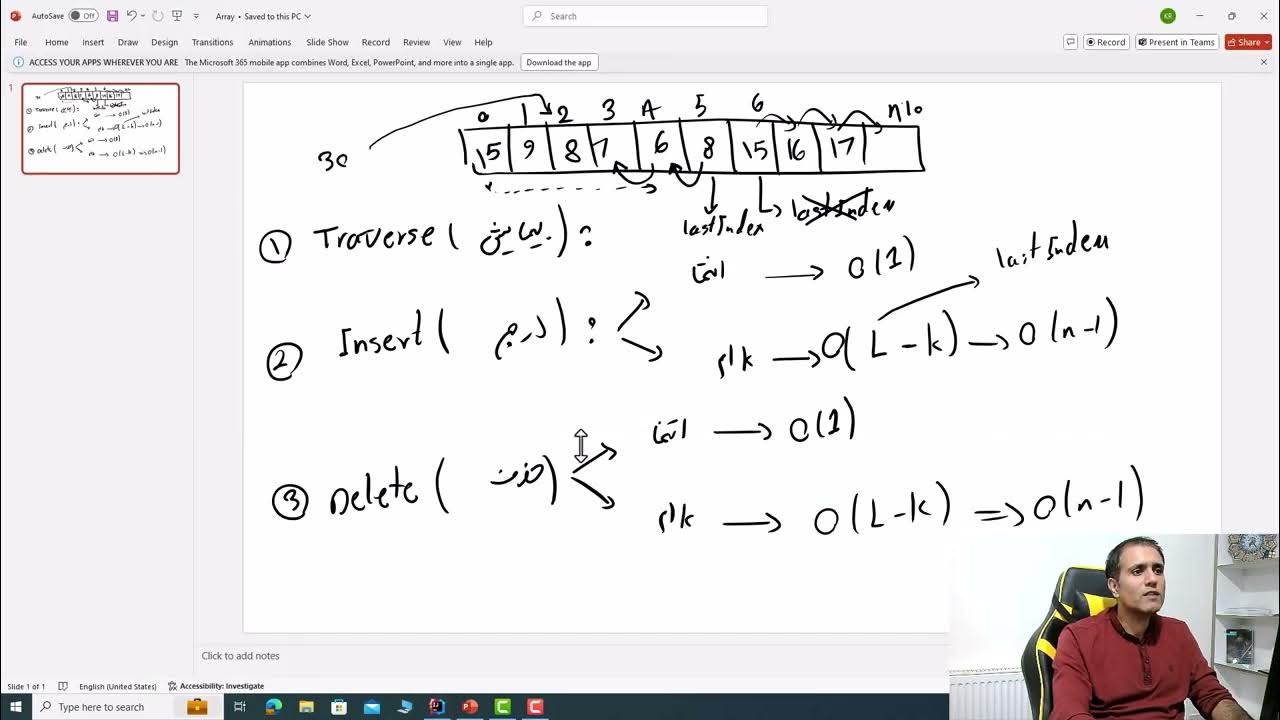 AutoSave Off Array • Saved to this PC Search KR
File Home Insert Draw Design Transitions Animations Slide Show Record Review View Help Record Present in Teams Share
ACCESS YOUR APPS WHEREVER YOU ARE The Microsoft 365 mobile app combines Word, Excel, PowerPoint, and more into a single app. Download the app
1
0 1 2 3 4 5 6 n:10
30 15 9 8 7 6 8 15 16 17
lastIndex lastIndex
1 Traverse( پیمایش ) :
انتها → O(1) lastIndex
2 Insert( درج ) :
k ام → O(L-k) → O(n-1)
انتها → O(1)
3 Delete( حذف )
k ام → O(L-k) ⇒ O(n-1)
Click to add notes
Slide 1 of 1 English (United States) Accessibility: Investigate
Type here to search